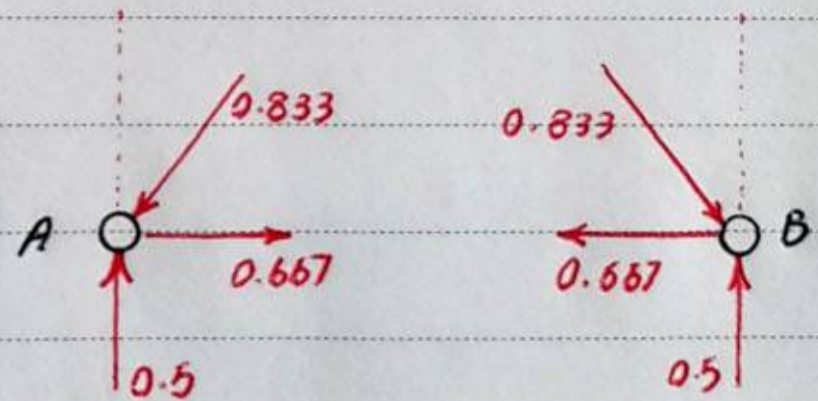 0.833 0.833
A B
0.667 0.667
0.5 0.5